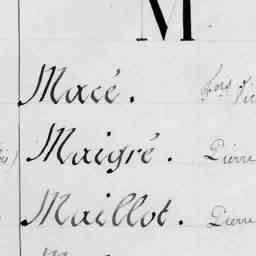 M
Macé. Fois
Maigré. Pierre
Maillot. Pierre